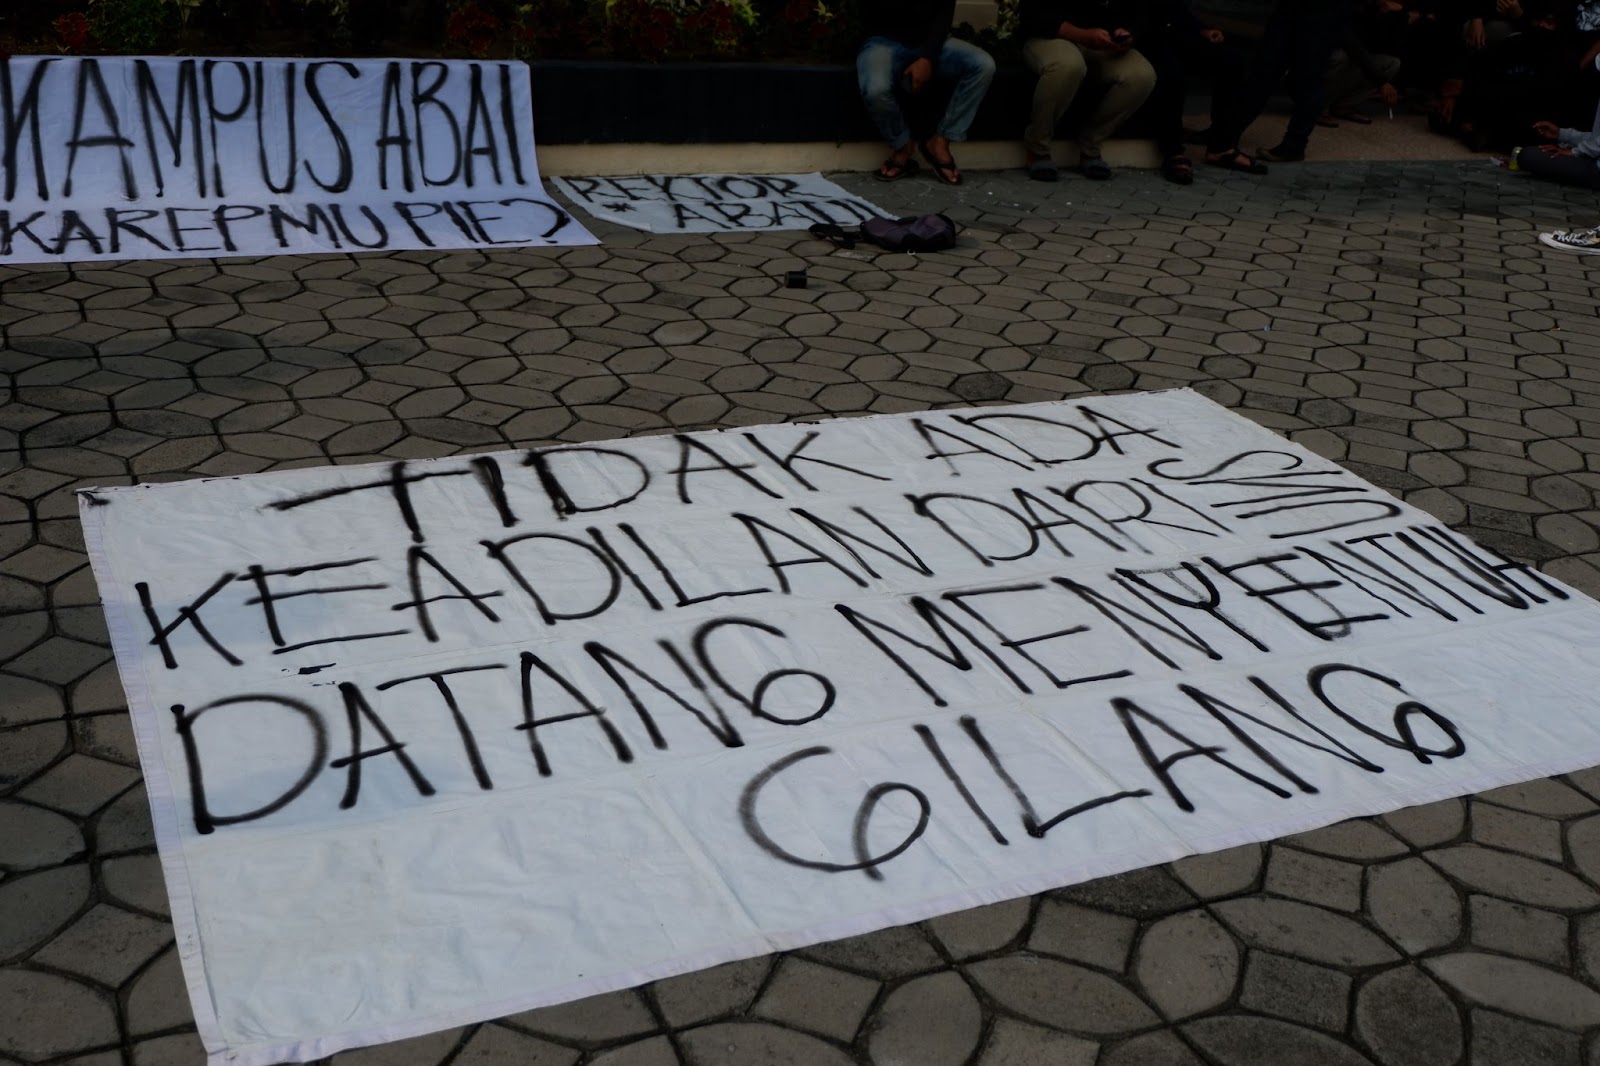 KAMPUS ABAI
KAREPMU PIE?
REKTOR
* ABAI
TIDAK ADA
KEADILAN DARI UNS
DATANG MENYENTUH
GILANG